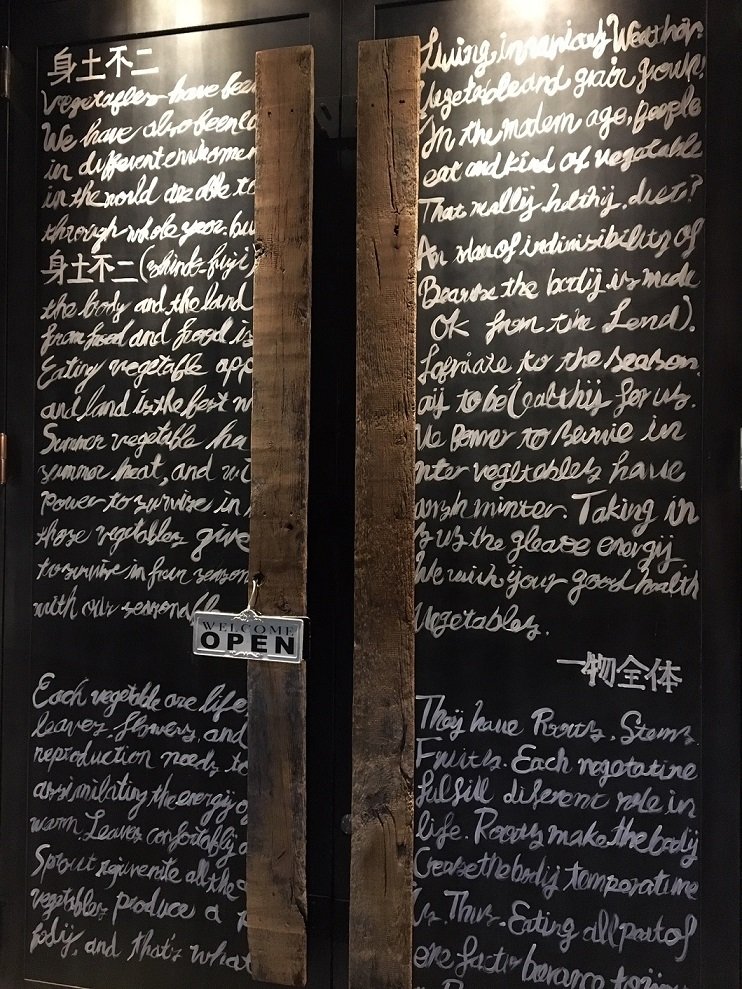 身土不二
vegetables have been
We have also been
in different enviromen
in the world are able to
through whole year. bu
身土不二(shindo fuji)
the body and the land
from food and food is
Eating vegetable app
and land is the best
Summer vegetable ha
summer heat, and wi
Power to survive in
those vegetables give
to survive in four season
with our seasonal
WELCOME
OPEN
Each vegetable are life
leaves, flowers, and
reproduction needs to
assimilating the energy o
warm. Leaves confortably
Sprout rejuvenite all the
vegetables produce a
body, and that's what
Living in various Weather.
Vegetable and grain grown.
In the modern age, people
eat and kind of vegetable
That really helthy diet?
An idea of indivisibility of
Because the body is made
OK from the Lend).
to the season
to be healthy for us.
Power to survive in
nter vegetables have
harsh winter. Taking in
s us the please energy
We wish your good health
Vegetables.
一物全体
They have Roots, Stems
Fruits. Each vegetative
fulfill diferent role in
life. Roots make the body
Crease the body temperature
Us. Thus, Eating all part of